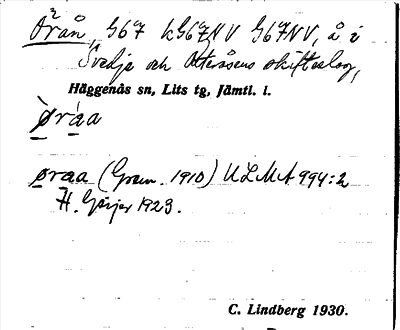 Örån, G67 kG67NV G67NV, å i
Svedje och Otteråsens skifteslag,
Häggenås sn, Lits tg, Jämtl. l.
øràa
øraa (Gram. 1910) ULMA 994:2
H. Geijer 1923.
C. Lindberg 1930.